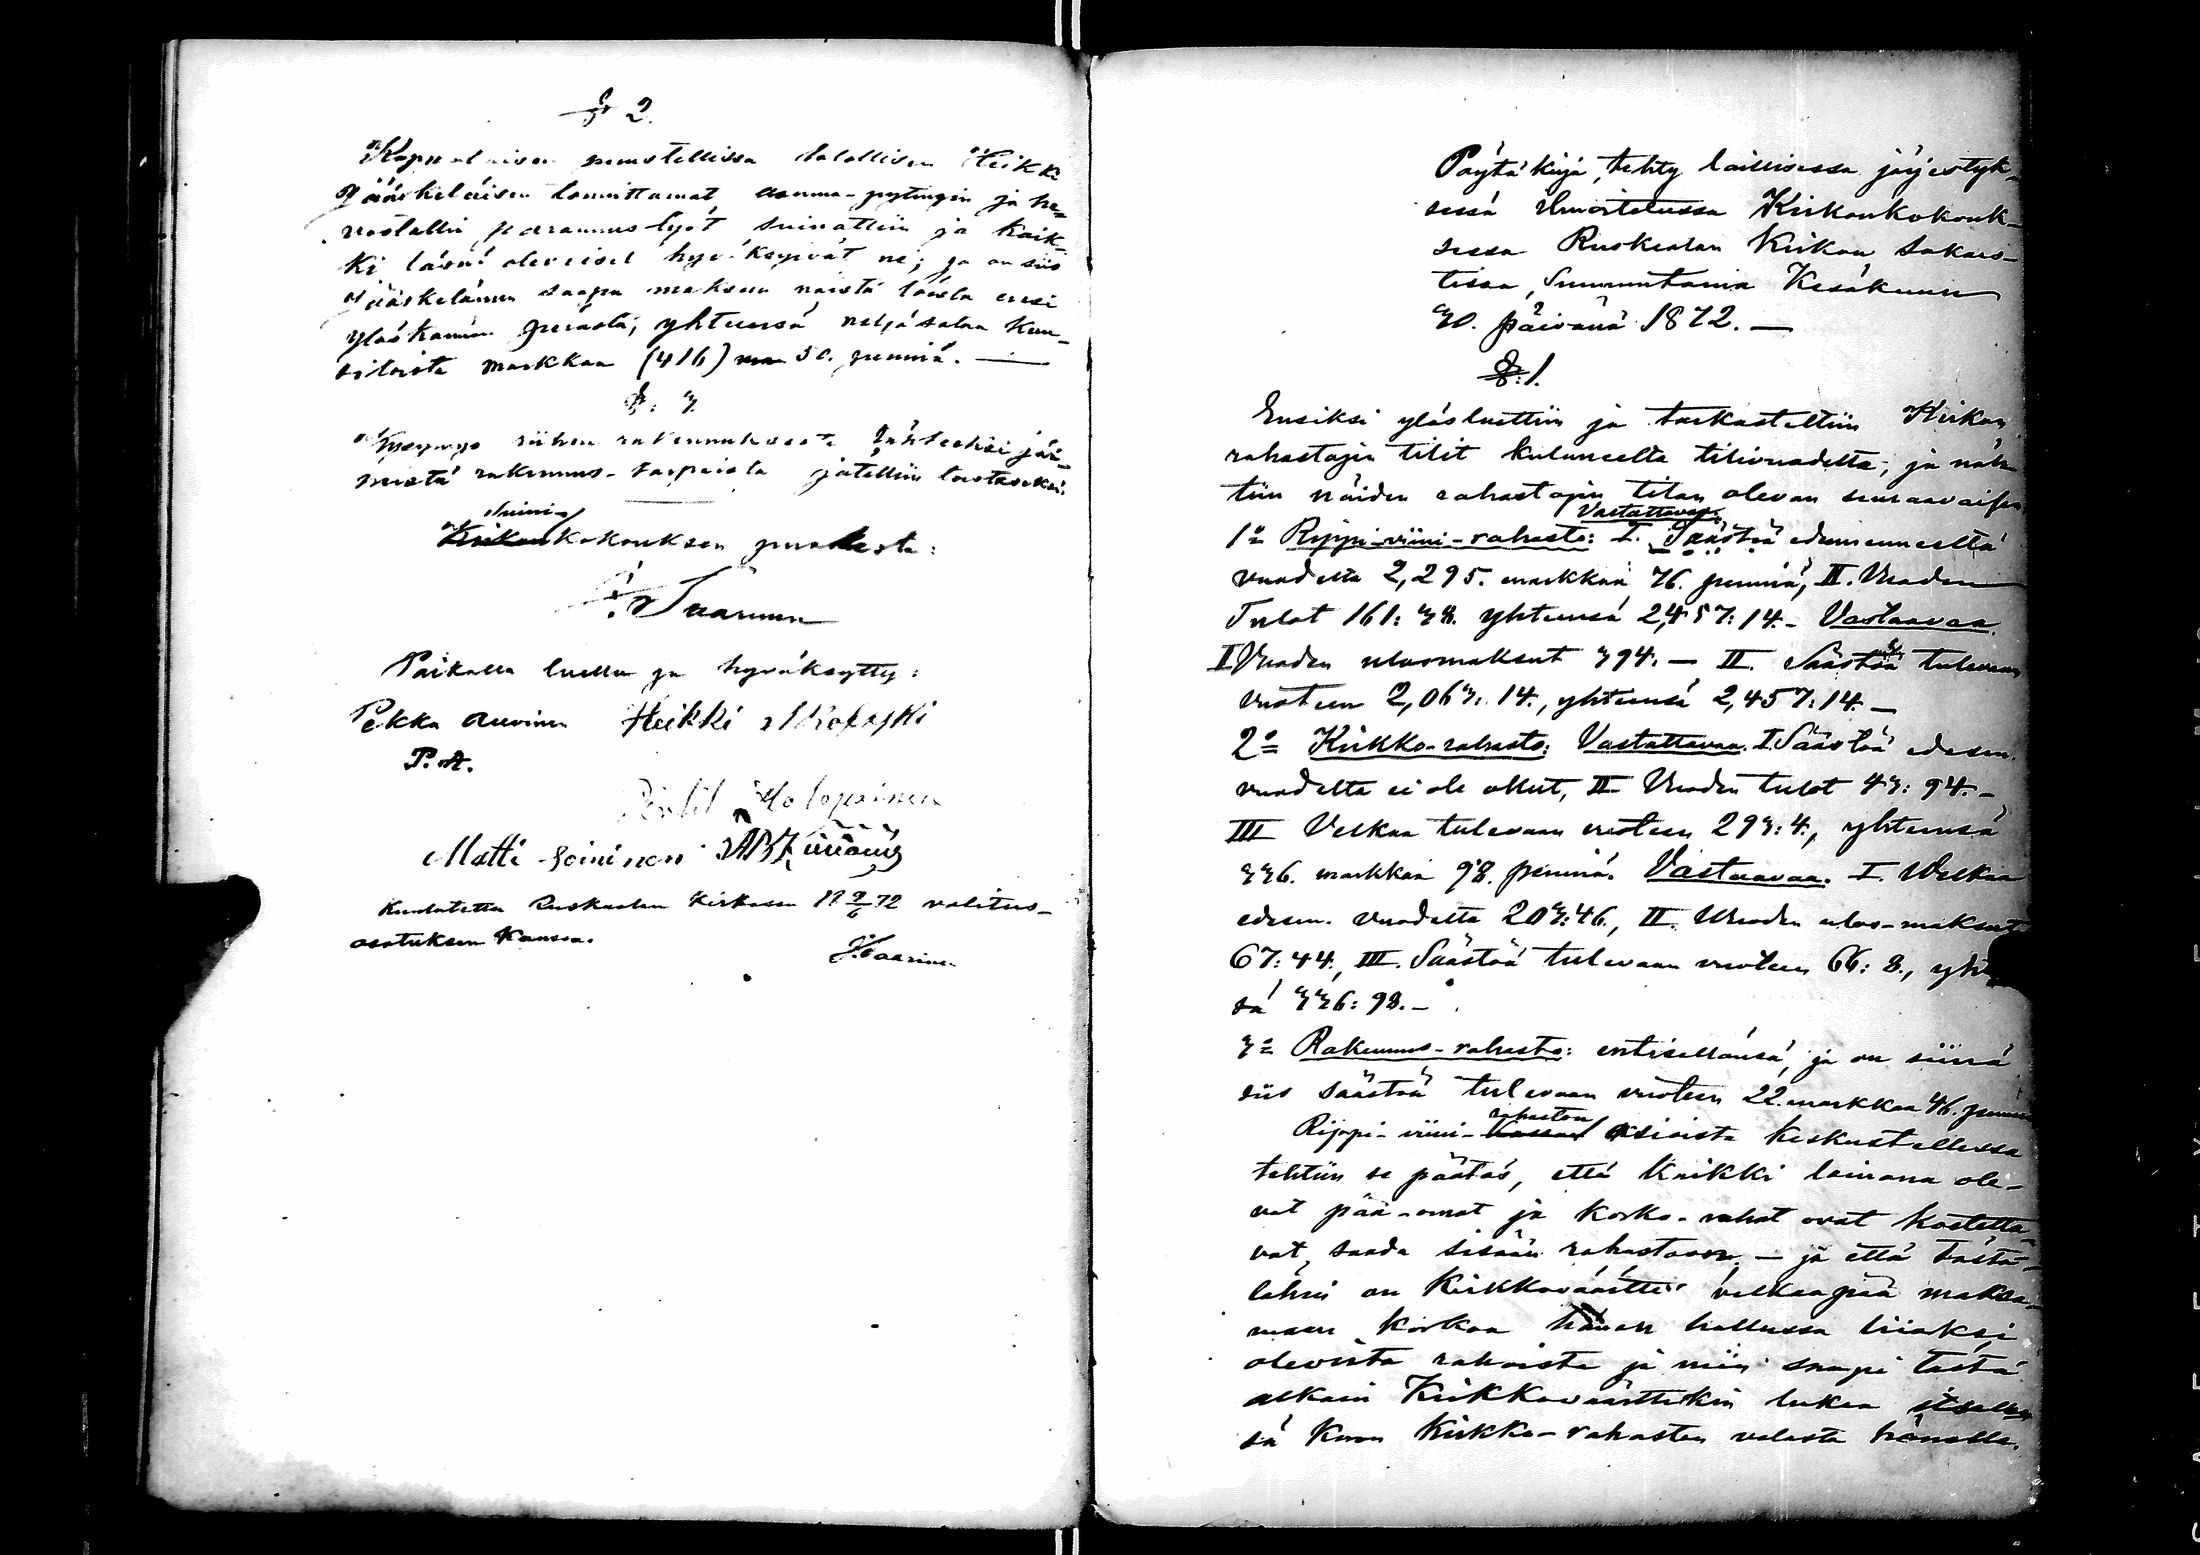 § 2.
Kappalaisen puustellissa talollisen Heikki
Jääskeläisen toimittamat asuma-pytingin ja he-
vostallin parannus työt suinattiin ja kaik-
ki läsnä olevaiset hyväksyivät ne; ja on siis
Jääskeläinen saapa maksun näistä töistä ensi
ylöskannon perästä, yhteensä neljäsataa kuu-
sitoista markkaa (416) 50. penniä. —
§: 3.
Kysymys riihen rakennuksesta tähteeksi jää-
neistä rakennus-tarpeista jätettiin toistaseksi.
Kirkonkokouksen puolesta:
Paikalla luettu ja hyväksytty:
Pekka Heikki
P. A.
Pentti Holopainen
Matti Soininen
Kuulutettu Ruskealan Kirkossa 18 9/6 72 valitus-
osotuksen kanssa.
Pöytäkirja, tehty laillisessa järjestyk-
sessä ilmoitetussa Kirkonkokouk-
sessa Ruskealan Kirkon Sakars-
tissa, Sunnuntaina Kesäkuun
30. päivänä 1872. —
§: 1.
Ensiksi ylösluettiin ja tarkasteltiin Kirkon
rahastojen tilit kuluneelta tilivuodelta, ja näh-
tiin näiden rahastojen tilan olevan seuraavaisen
Vastattavaa:
1:o Rippi-viini-rahasto: I. Säästöä edesmenneeltä
vuodelta 2,295. markkaa 76. penniä, II. Vuoden
Tulot 161: 38. yhteensä 2,457: 14. - Vastaavaa.
I Vuoden ulosmaksut 394. — II. Säästöä tulevaan
vuoteen 2,063: 14., yhteensä 2,457: 14. —
2:o Kirkko-rahasto: Vastattavaa. I. Säästöä edesm.
vuodelta ei ole ollut, II Vuoden tulot 43: 94. -
III Velkaa tulevaan vuoteen 293: 4., yhteensä
336. markkaa 98. penniä. Vastaavaa. I. Velkaa
edesm. vuodelta 203: 46., II. Vuoden ulos-maksut
67: 44., III. Säästöä tulevaan vuoteen 66: 8., yhteen-
sä 336: 98. -
3:o Rakennus-rahasto: entisellänsä, ja on siinä
siis säästöä tulevaan vuoteen 22. markkaa 46. penniä
rahaston
Rippi-viini-Kassan asioista keskustellessa
tehtiin se päätös, että kaikki lainana ole-
vat pää-omat ja korko-rahat ovat koetetta-
vat, saada sisään rahastoon, - ja että tästä-
lähin on Kirkkoväärtti velkaapää maksa-
maan korkoa hänen hallussa liiaksi
olevista rahoista ja niin saapi tästä
alkain Kirkkoväärttikin lukea itsellen-
sä koron Kirkko-rahaston velasta hänelle.